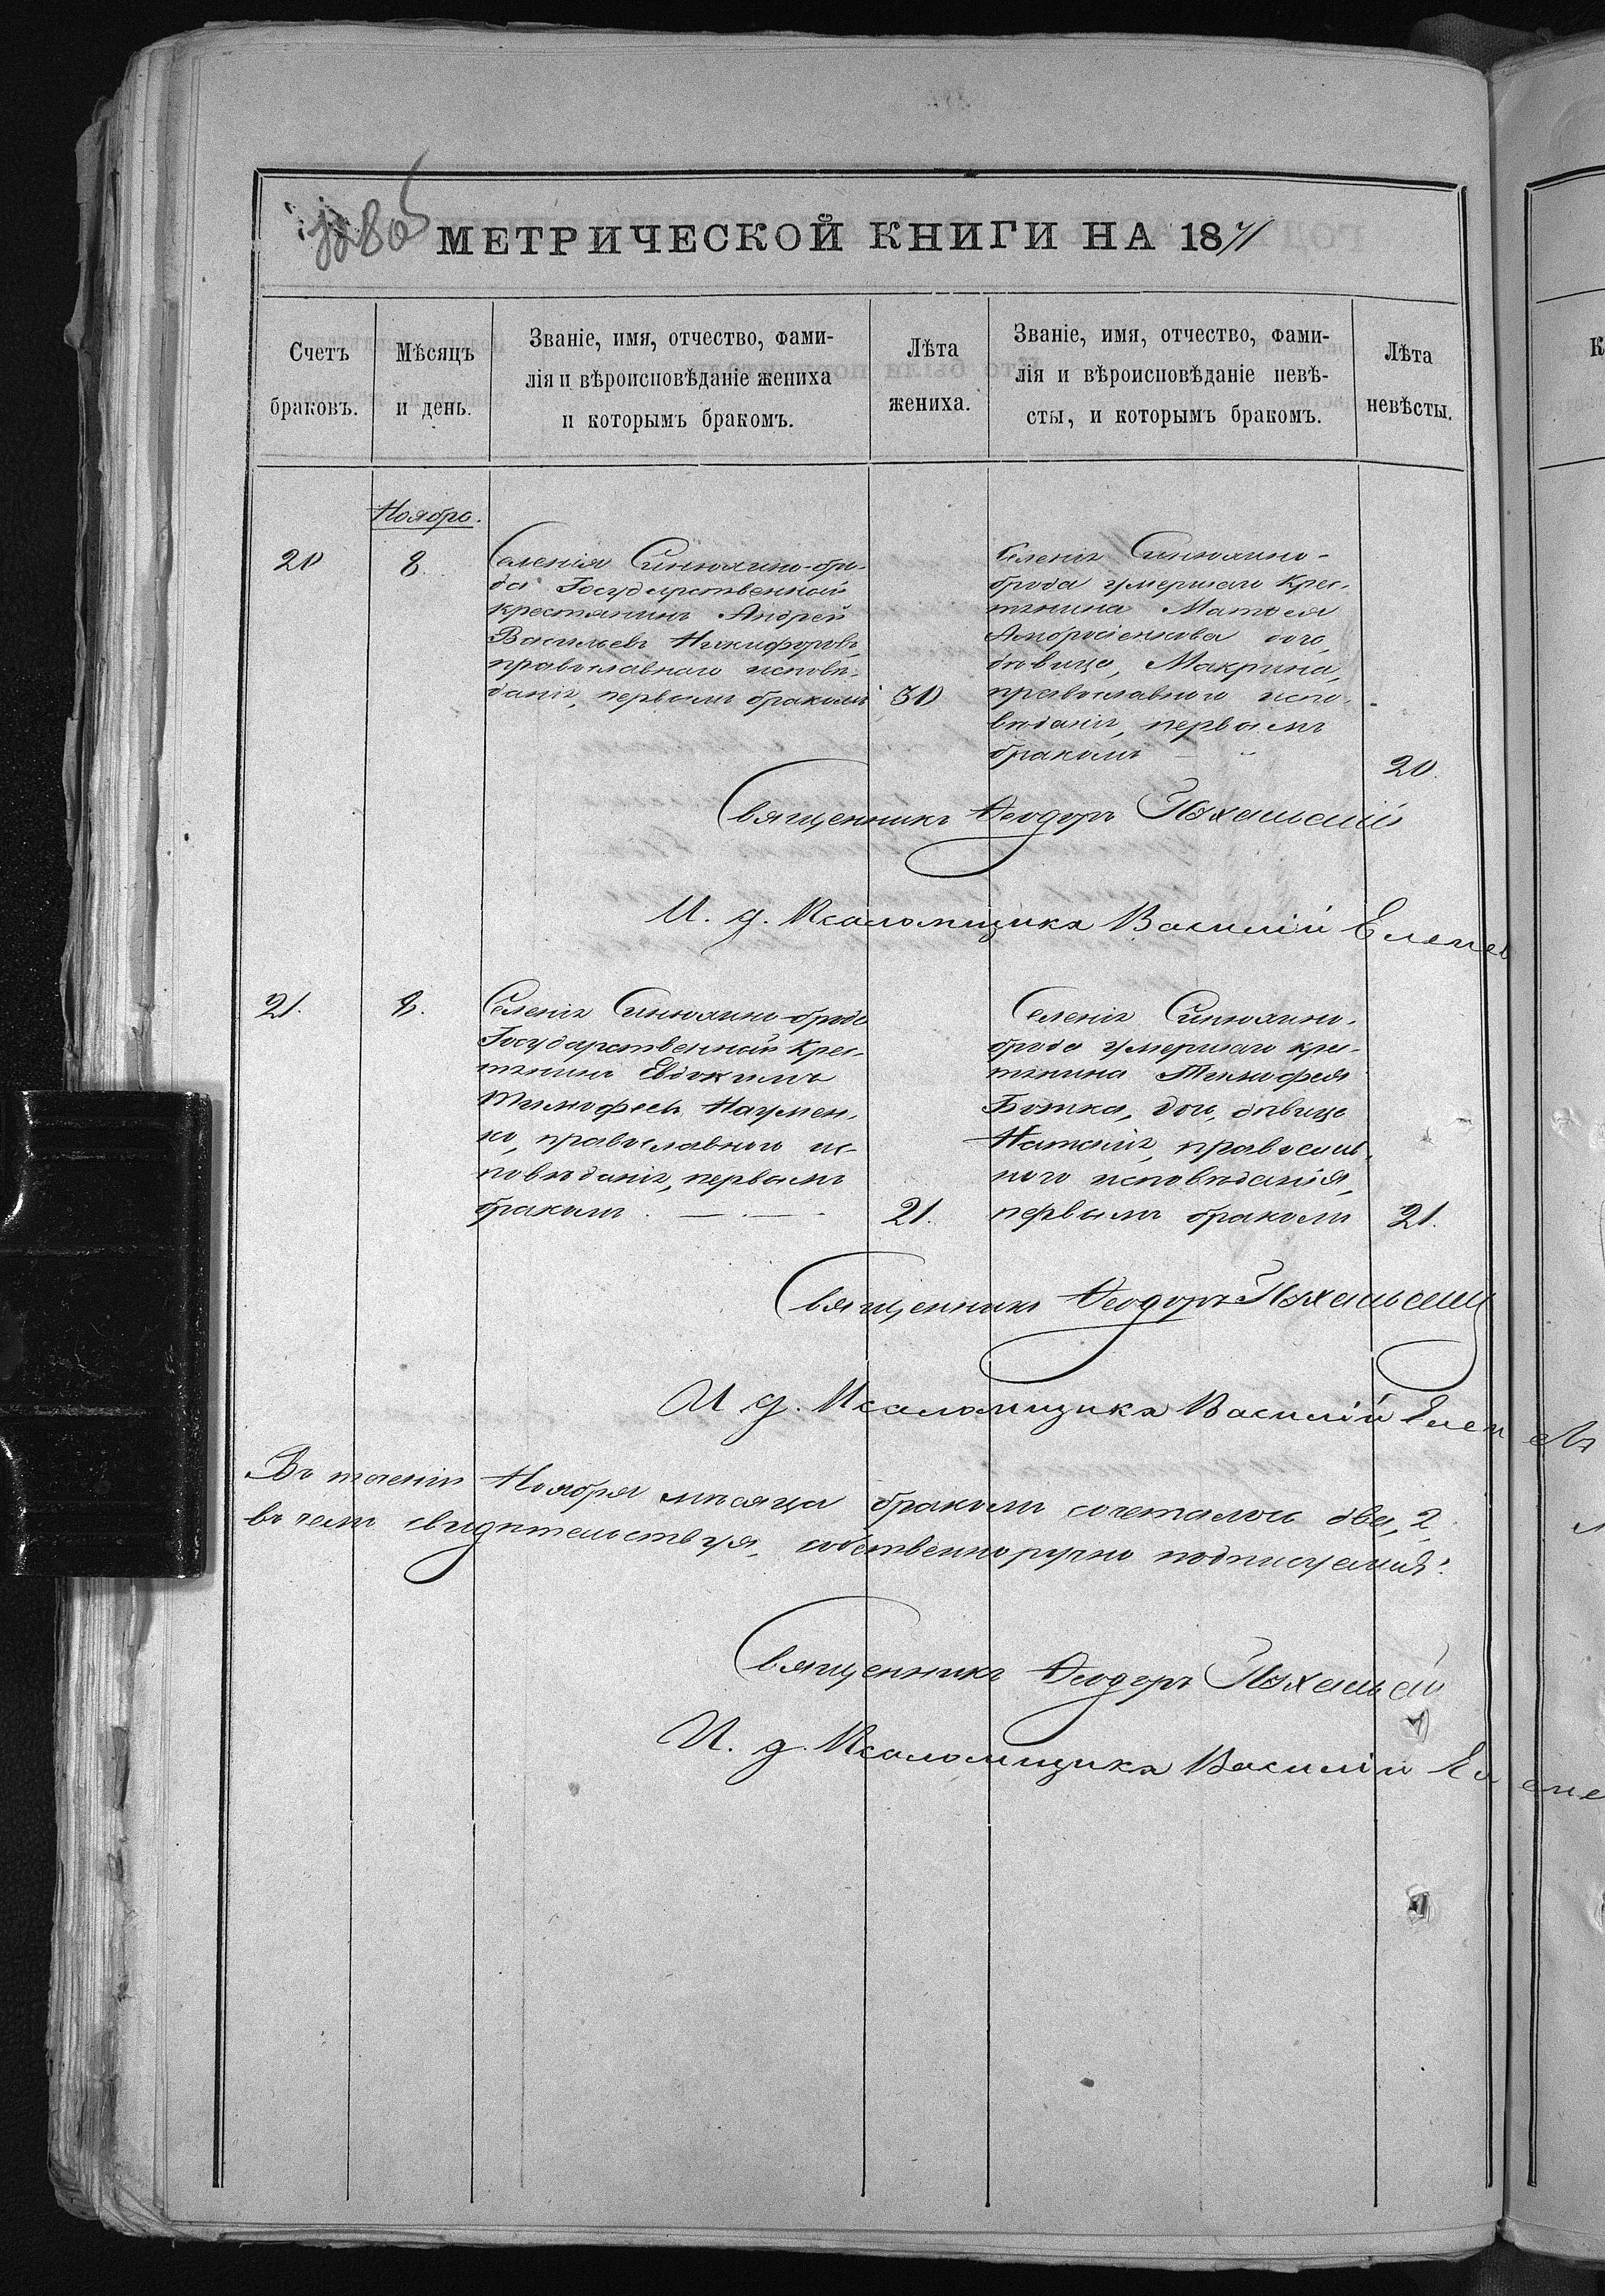 МЕТРИЧЕСКОЙ КНИГИ НА 1871
Счетъ браковъ.
Мѣсяцъ и день.
Званіе, имя, отчество, фами-
лія и вѣроисповѣданіе жениха
и которымъ бракомъ.
Лѣта жениха.
Званіе, имя, отчество, фами-
лія и вѣроисповѣданіе невѣ-
сты, и которымъ бракомъ.
Лѣта невѣсты.
Ноября.
20
8.
Селенія Синюхино-бро-
да Государственный
крестьянинъ Андрей
Васильевъ Никифоровъ,
православнаго исповѣ-
данія, первымъ бракомъ
30
Селенія Синюхино-
брода умершаго крес-
тьянина Матвея
дочь,
дѣвица, Макрина,
православнаго испо-
вѣданія, первымъ
бракомъ
20.
Священникъ Ѳеодоръ
И. д. Псаломщика Василій
21.
8.
Селенія Синюхино-брода
Государственный крес-
тьянинъ Евдокимъ
Тимофеевъ Наумен-
ко, православнаго ис-
повѣданія, первымъ
бракомъ
21.
Селенія Синюхино-
брода умершаго крес-
тьянина Тимофея
дочь, дѣвица
Наталія, православ-
наго исповѣданія,
первымъ бракомъ
21.
Священникъ Ѳеодоръ
И д. Псаломщика Василій
Въ теченіи Ноября мѣсяца бракомъ сочеталось два, 2,
въ чемъ свидѣтельствуя, собственноручно подписуемся:
Священникъ Ѳеодоръ
И. д. Псаломщика Василій